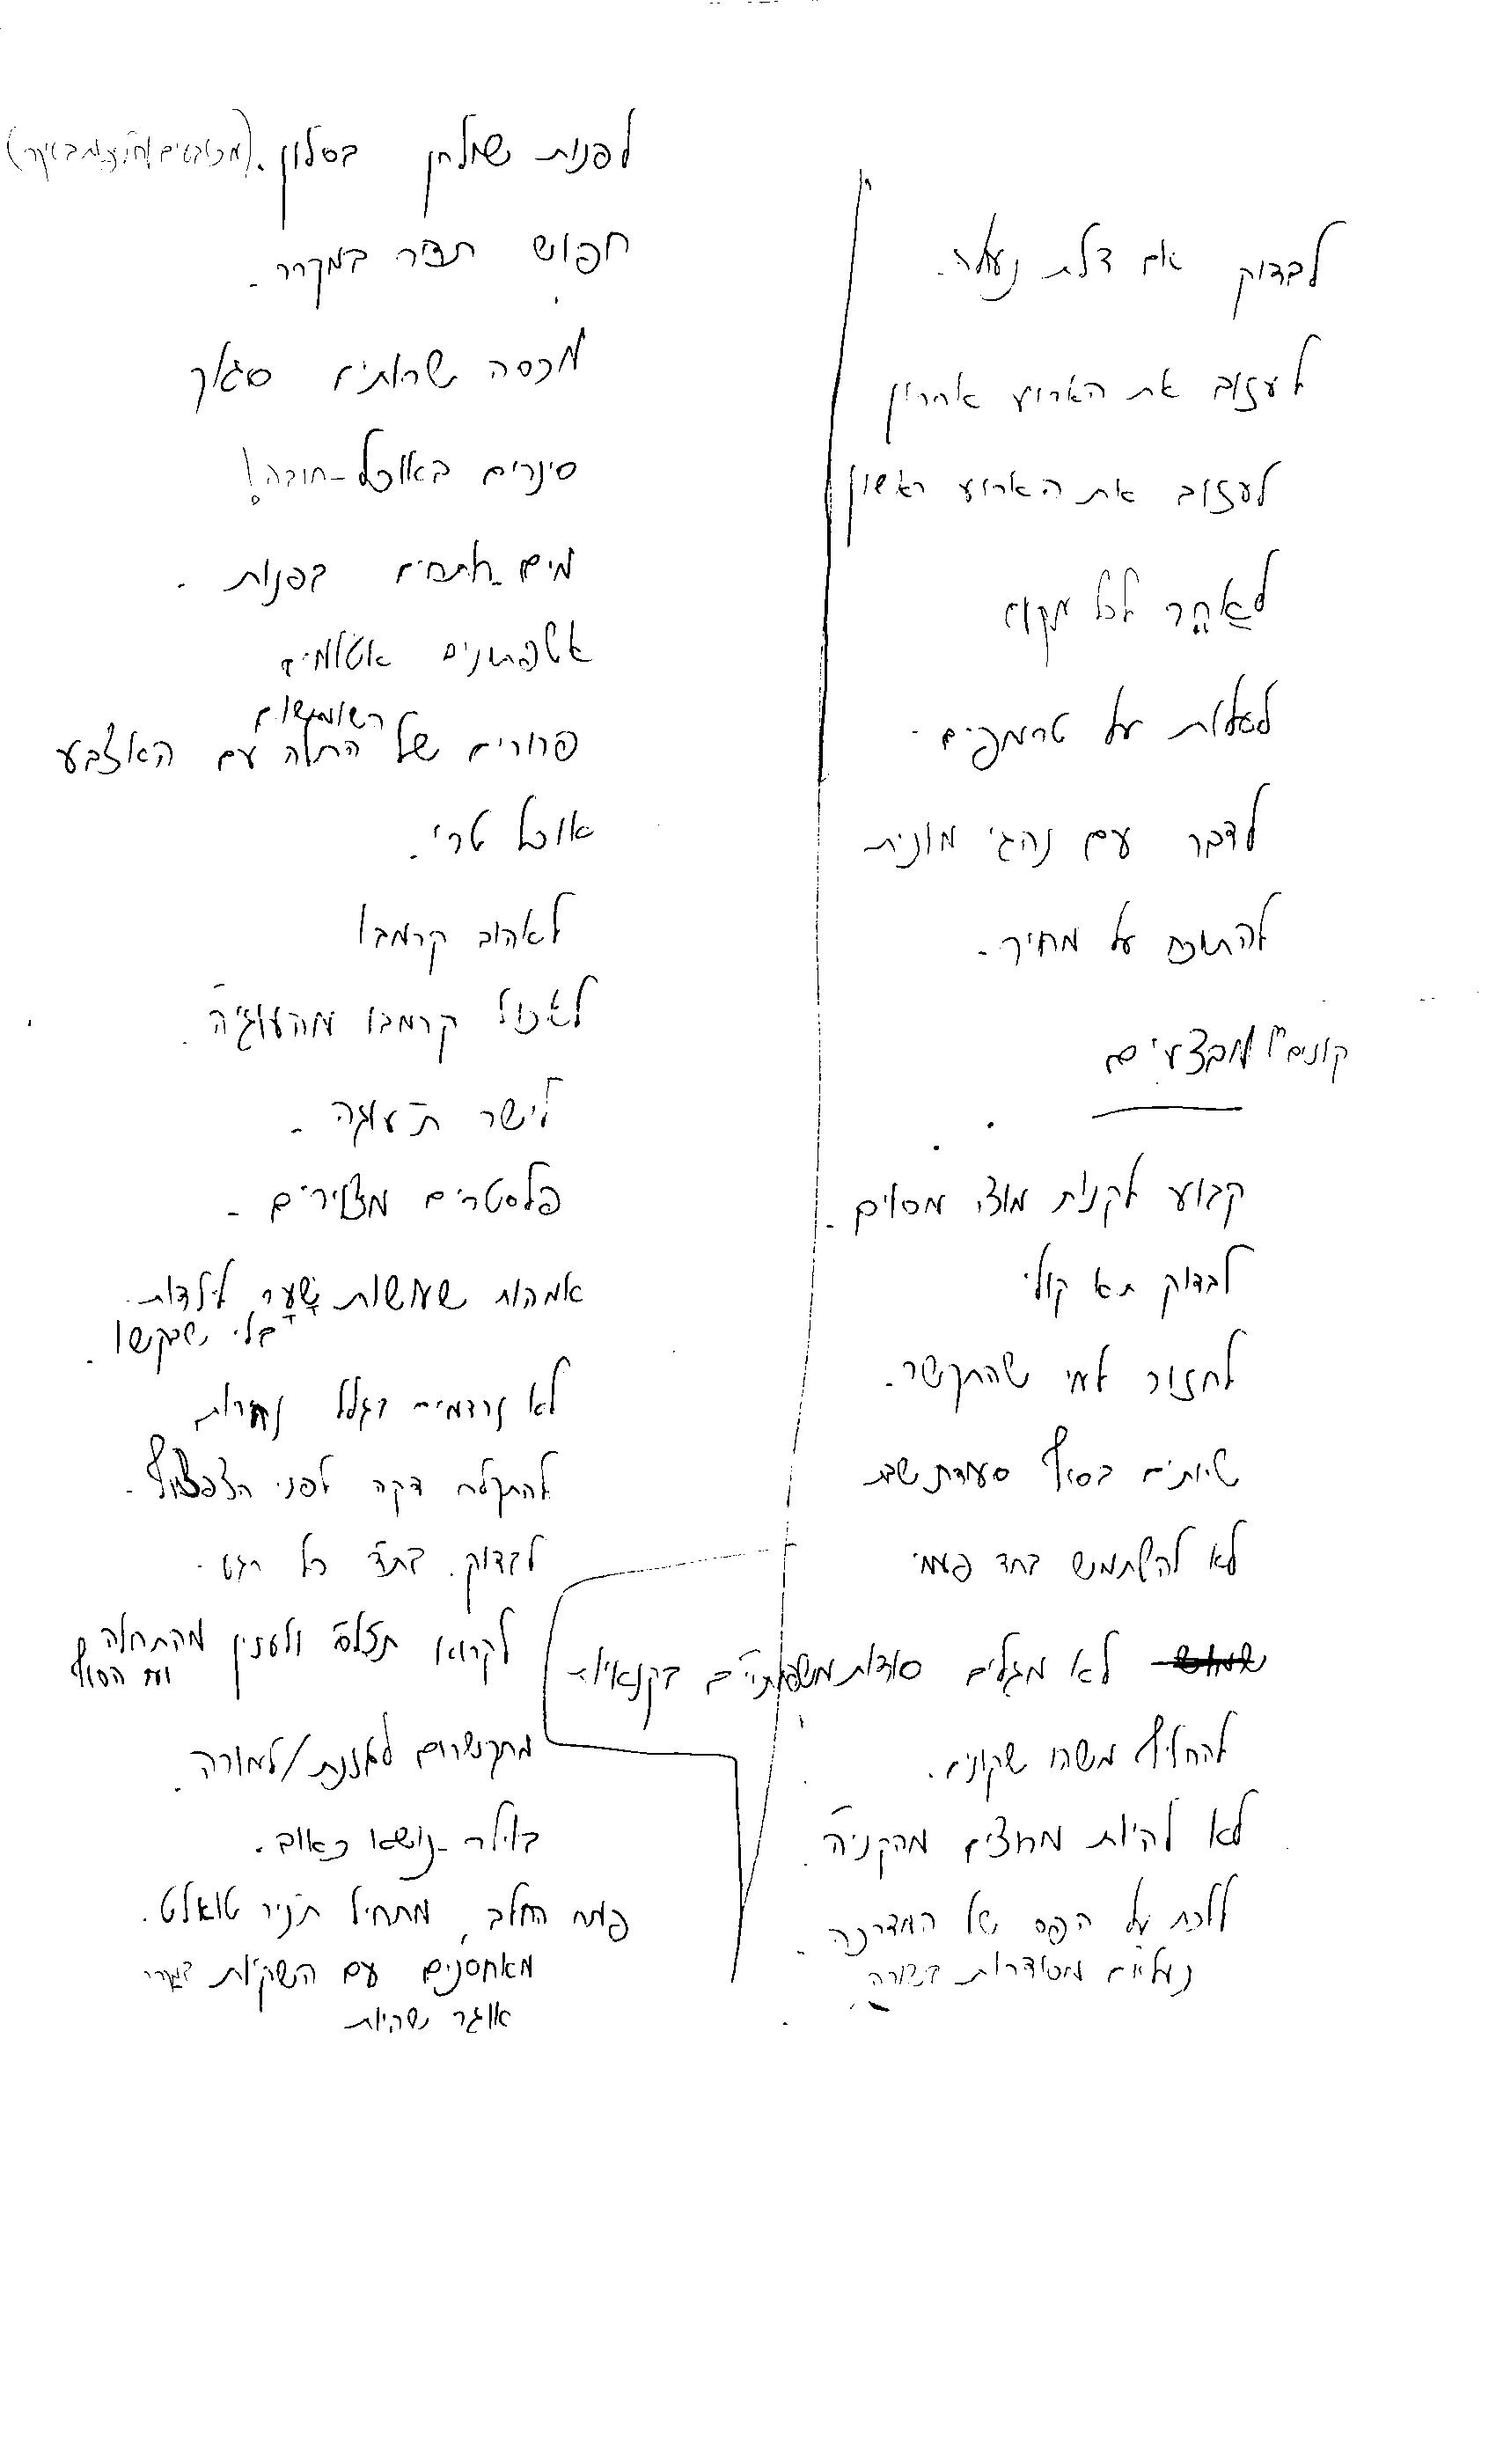 לבדוק אם דלת נעולה.
לעזוב את הארוע אחרון
לעזוב את הארוע ראשון
לאחר לכל מקום
לעלות על טרמפים.
לדבר עם נהגי מונית
להתווכח על מחיר.
קונים מבצעים
קבוע לקנות מוצר מסוים.
לבדוק תא קולי
לחזור למי שהתקשר.
שיותים בסוף סעודת שבת
לא להשתמש בחד פעמי
לא מגלים סודות משפחתיים בקנאות
להחליף משהו שקונים.
לא להיות מרוצים מהקניה.
ללכת על הפס של המדרכה.
נעליים מסודרות בשורה
לפנות שולחן בסלון.
חפוש תדיר במקרר.
מכסה שרותים סגור
סינרים באוכל - חובה!
מים - חותמים בפנות.
אשפתונים אטומים
פרורים של החלה עם האצבע
אוכל טרי.
לאהוב קרמבו
לאכול קרמבו מהעוגיה.
לישר ת'עוגה.
פלסטרים מצוירים.
אמהות שעושות שֵׂעָר לילדות.
בלי שבקשו.
לא נרדמים בגלל נחרות
להתקלח דקה לפני
לבדוק. כל רגע.
לקרוא ולענין מהתחלה
ועד הסוף
מתקשרים לגננת/למורה.
בוילה - נושא כאוב.
פותח החלב, מתחיל ת'ניר טואלט.
מאחסנים עם השקיות
אוגר שקיות